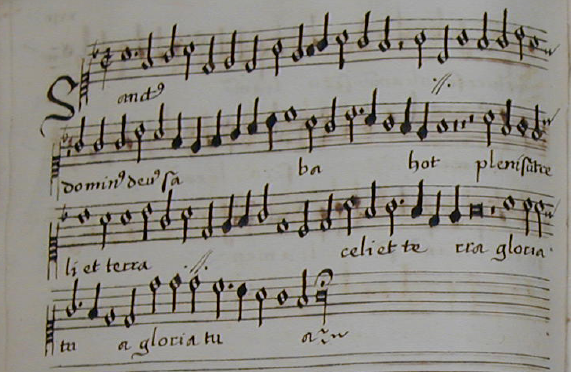 Sanctꝰ ·//·
dominꝰ deuꝰ sa ba hot pleni sūt ce
li et terra ·//· celi et te rra gloria
tu a gloria tu a